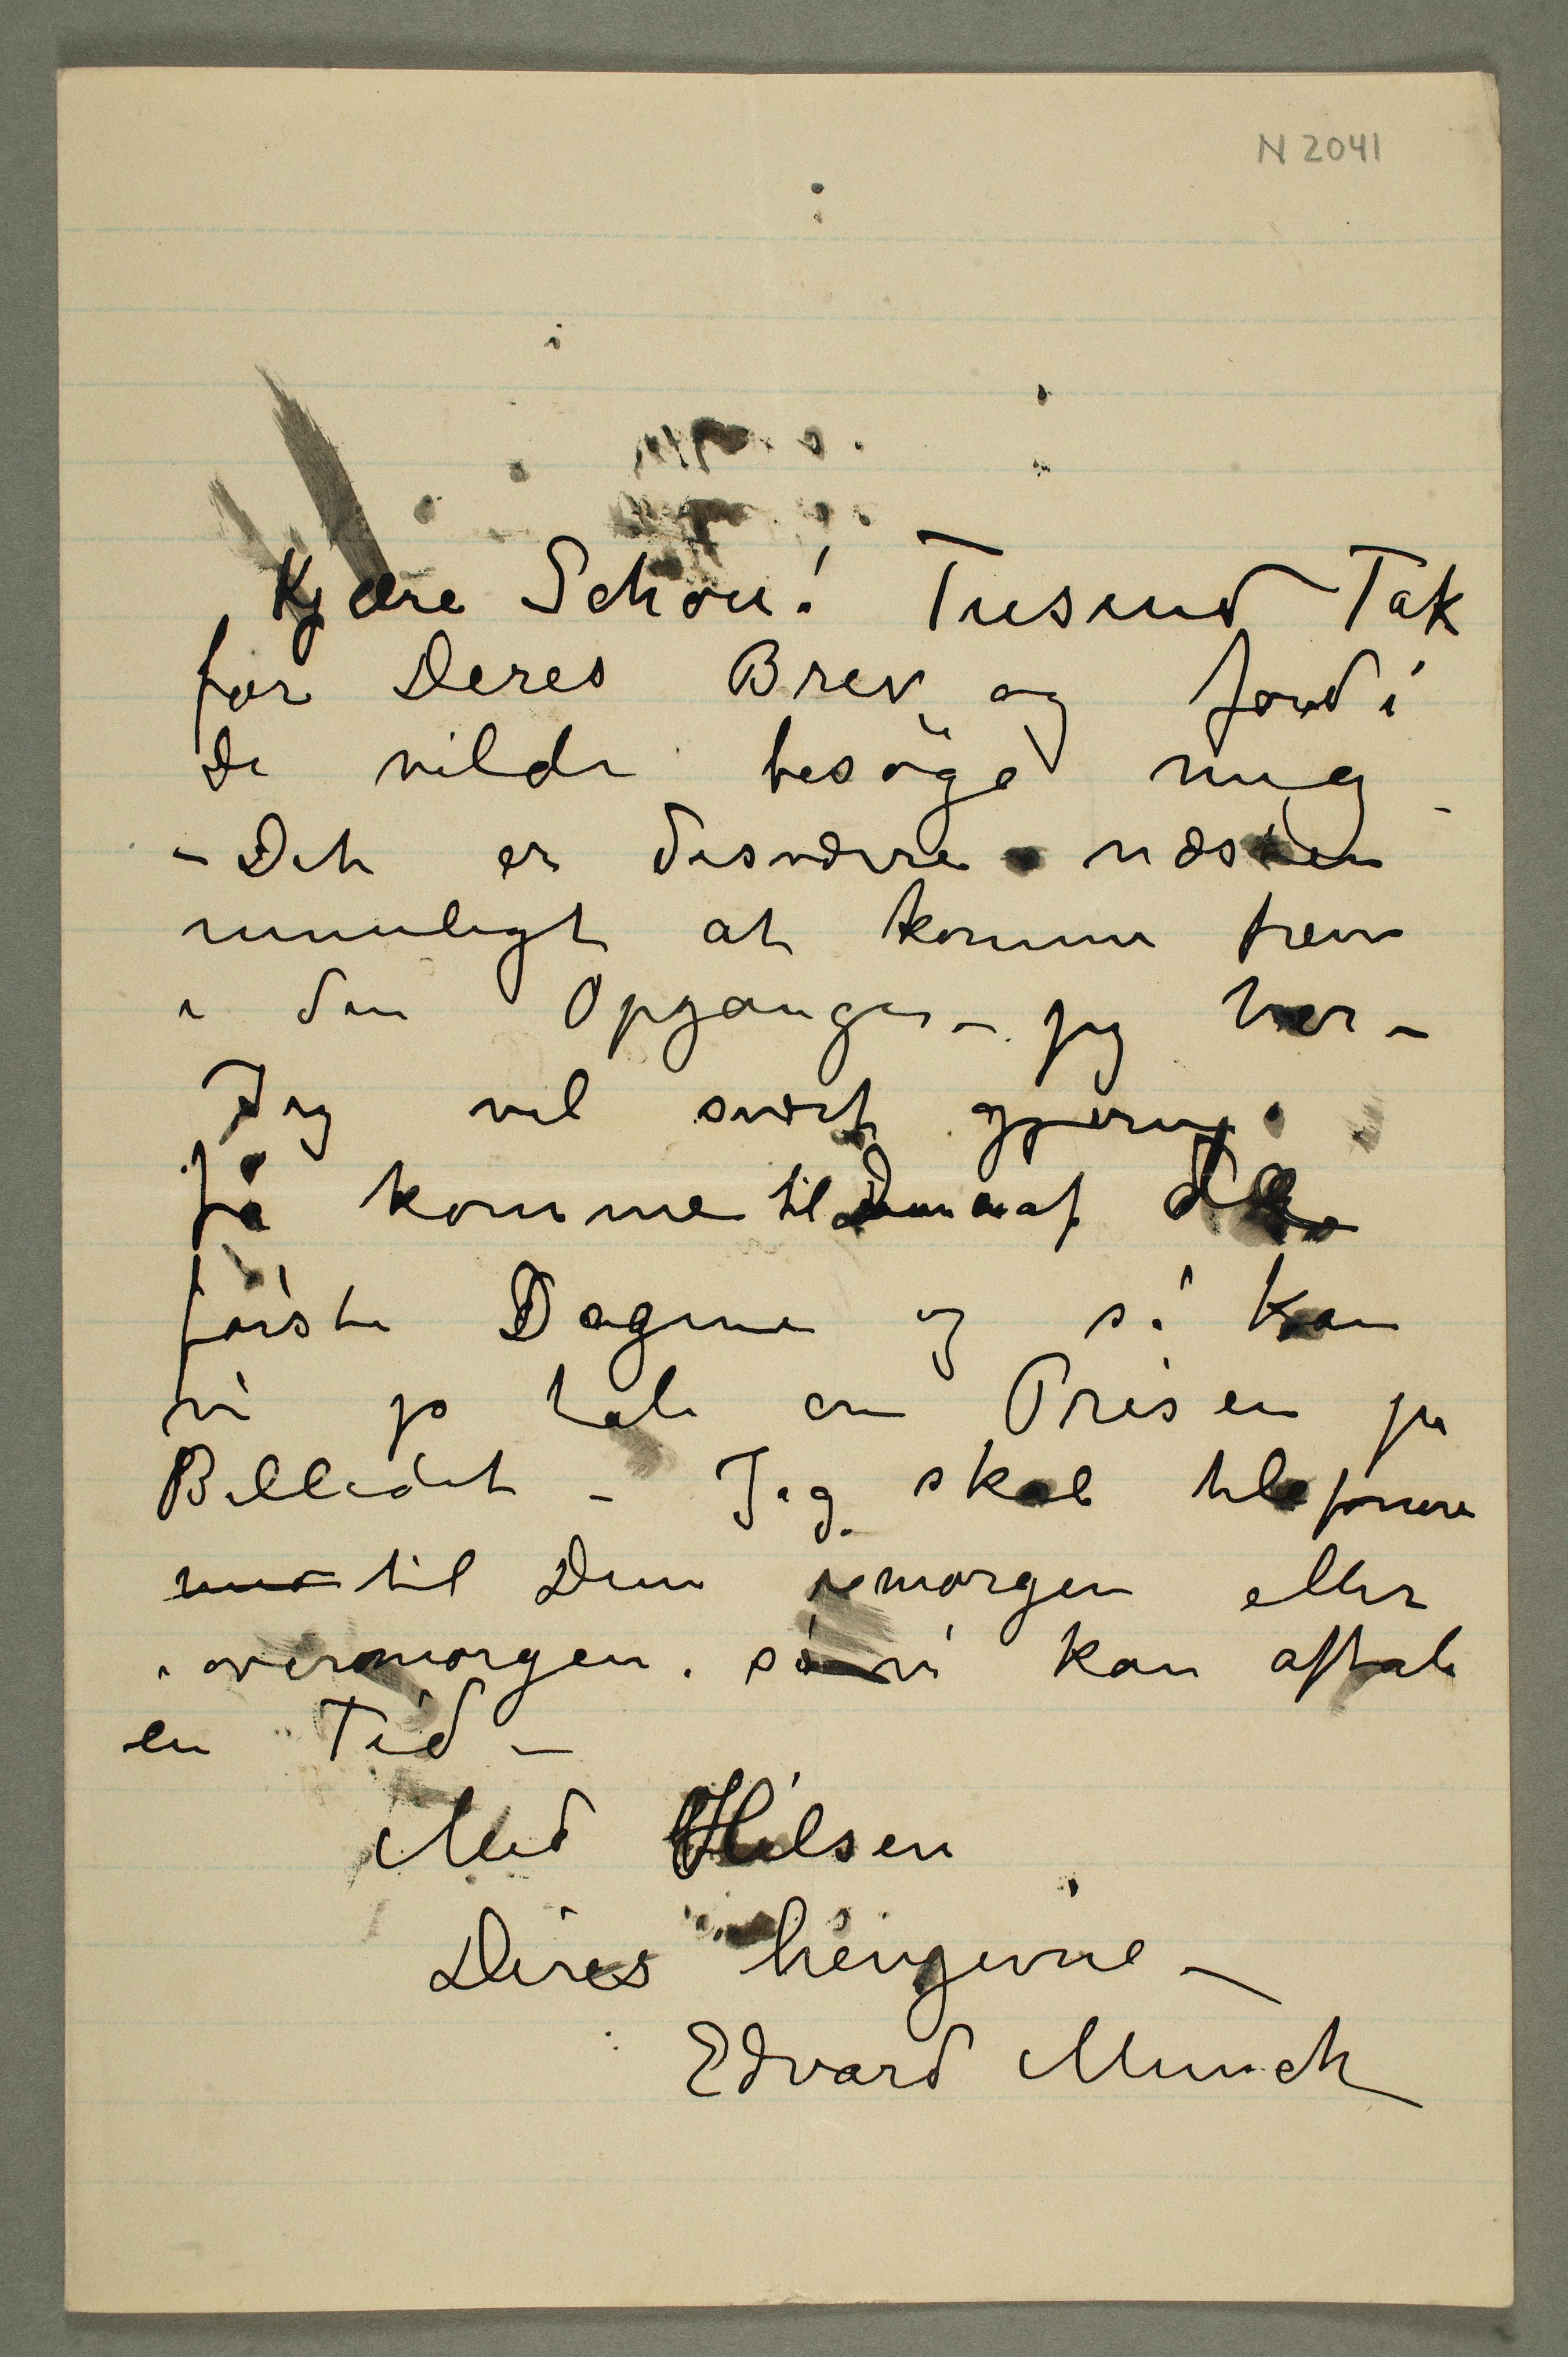 N 2041
Kjære Schou! Tusind Tak
for Deres Brev og fordi
De vilde besöge mig –
– Det er desværre næsten
umuligt at komme frem
i den Opgangen – jeg har –
Jeg vil svært gjerne
få komme til Dem en af de
förste Dagene og så kan
vi jo tale om Prisen på
Billedet – Jeg skal telefonere
til Dem imorgen eller
i overmorgen. så vi kan aftale
en Tid –
Med Hilsen
Deres hengivne –
Edvard Munch